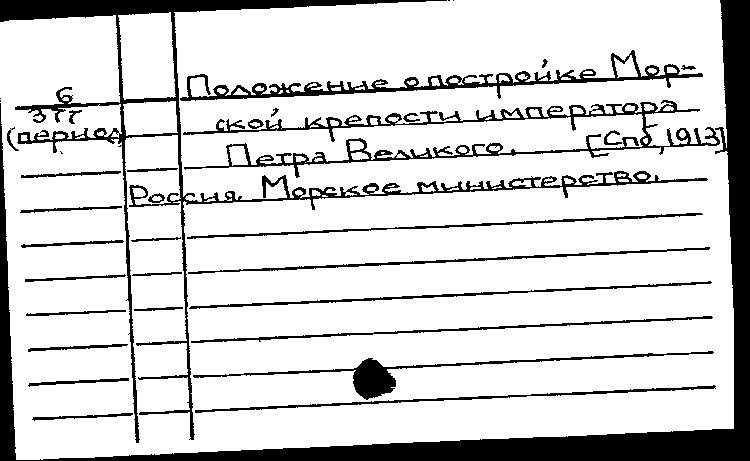 6
377
(период)
Положение о постройке Мор-
ской крепости императора
Петра Великого. [Спб, 1913]
Россия. Морское министерство.